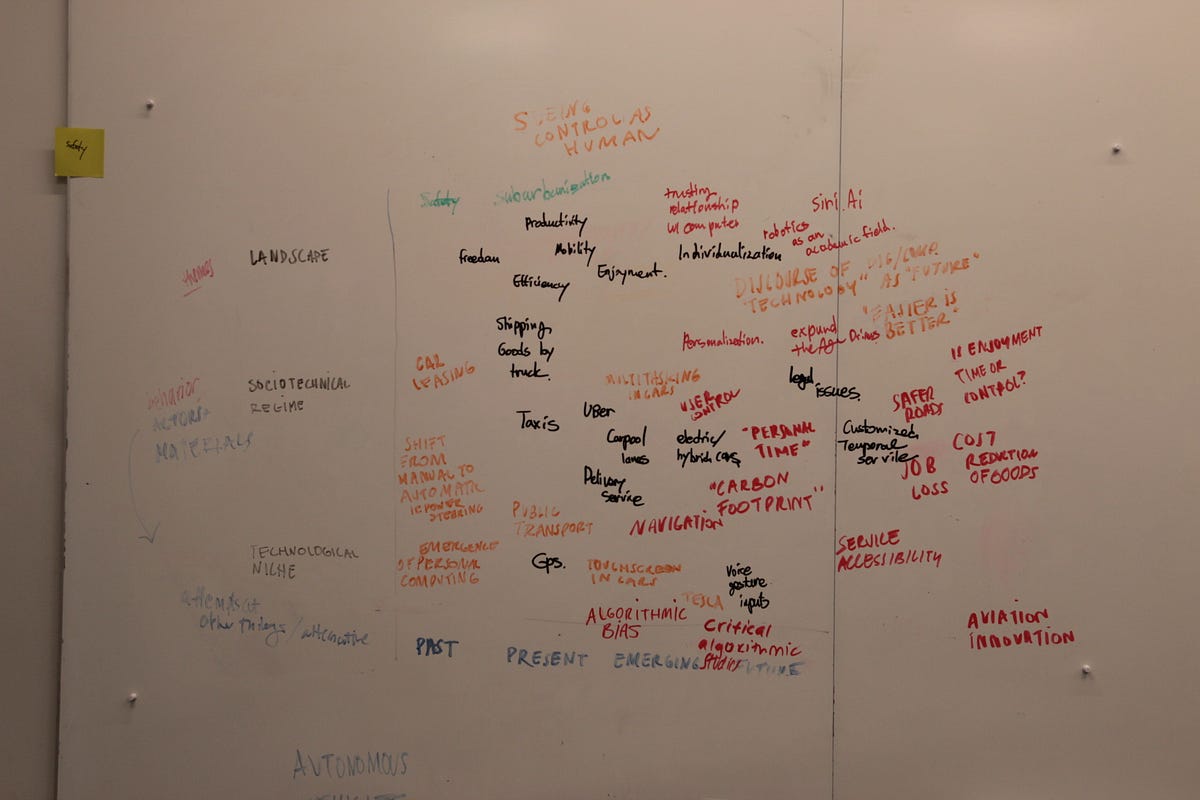 SEEING
CONTROL AS
HUMAN
Safety
Safety
suburbanization
Productivity
Mobility
freedom
Efficiency
Enjoyment.
trusting
relationship
w/ computer
Siri. Ai
robotics
as an
academic field.
Individualization
DISCOURSE OF DIG/COMP.
"TECHNOLOGY" AS "FUTURE"
"FASTER IS
BETTER"
LANDSCAPE
Shipping
Goods by
truck.
Personalization.
expand
the Age Drivers
legal
issues.
IS ENJOYMENT
TIME OR
CONTROL?
CAR
LEASING
MULTITASKING
IN CARS
USER CONTROL
SAFER
ROADS
behavior
ACTORS
MATERIALS
SOCIOTECHNICAL
REGIME
Taxis
UBER
Carpool
lanes
electric/
hybrid cars
"PERSONAL
TIME"
Customized
Temporal
service
JOB
LOSS
COST
REDUCTION
OF GOODS
SHIFT
FROM
MANUAL TO
AUTOMATIC
POWER
STEERING
Delivery
Service
"CARBON
FOOTPRINT"
PUBLIC
TRANSPORT
NAVIGATION
SERVICE
ACCESSIBILITY
TECHNOLOGICAL
NICHE
EMERGENCE
OF PERSONAL
COMPUTING
Gps.
TOUCHSCREEN
IN CARS
Voice
gesture
inputs
TESLA
attempts at
other things / alternative
ALGORITHMIC
BIAS
Critical
algorithmic
studies
AVIATION
INNOVATION
PAST
PRESENT
EMERGING
FUTURE
AUTONOMOUS